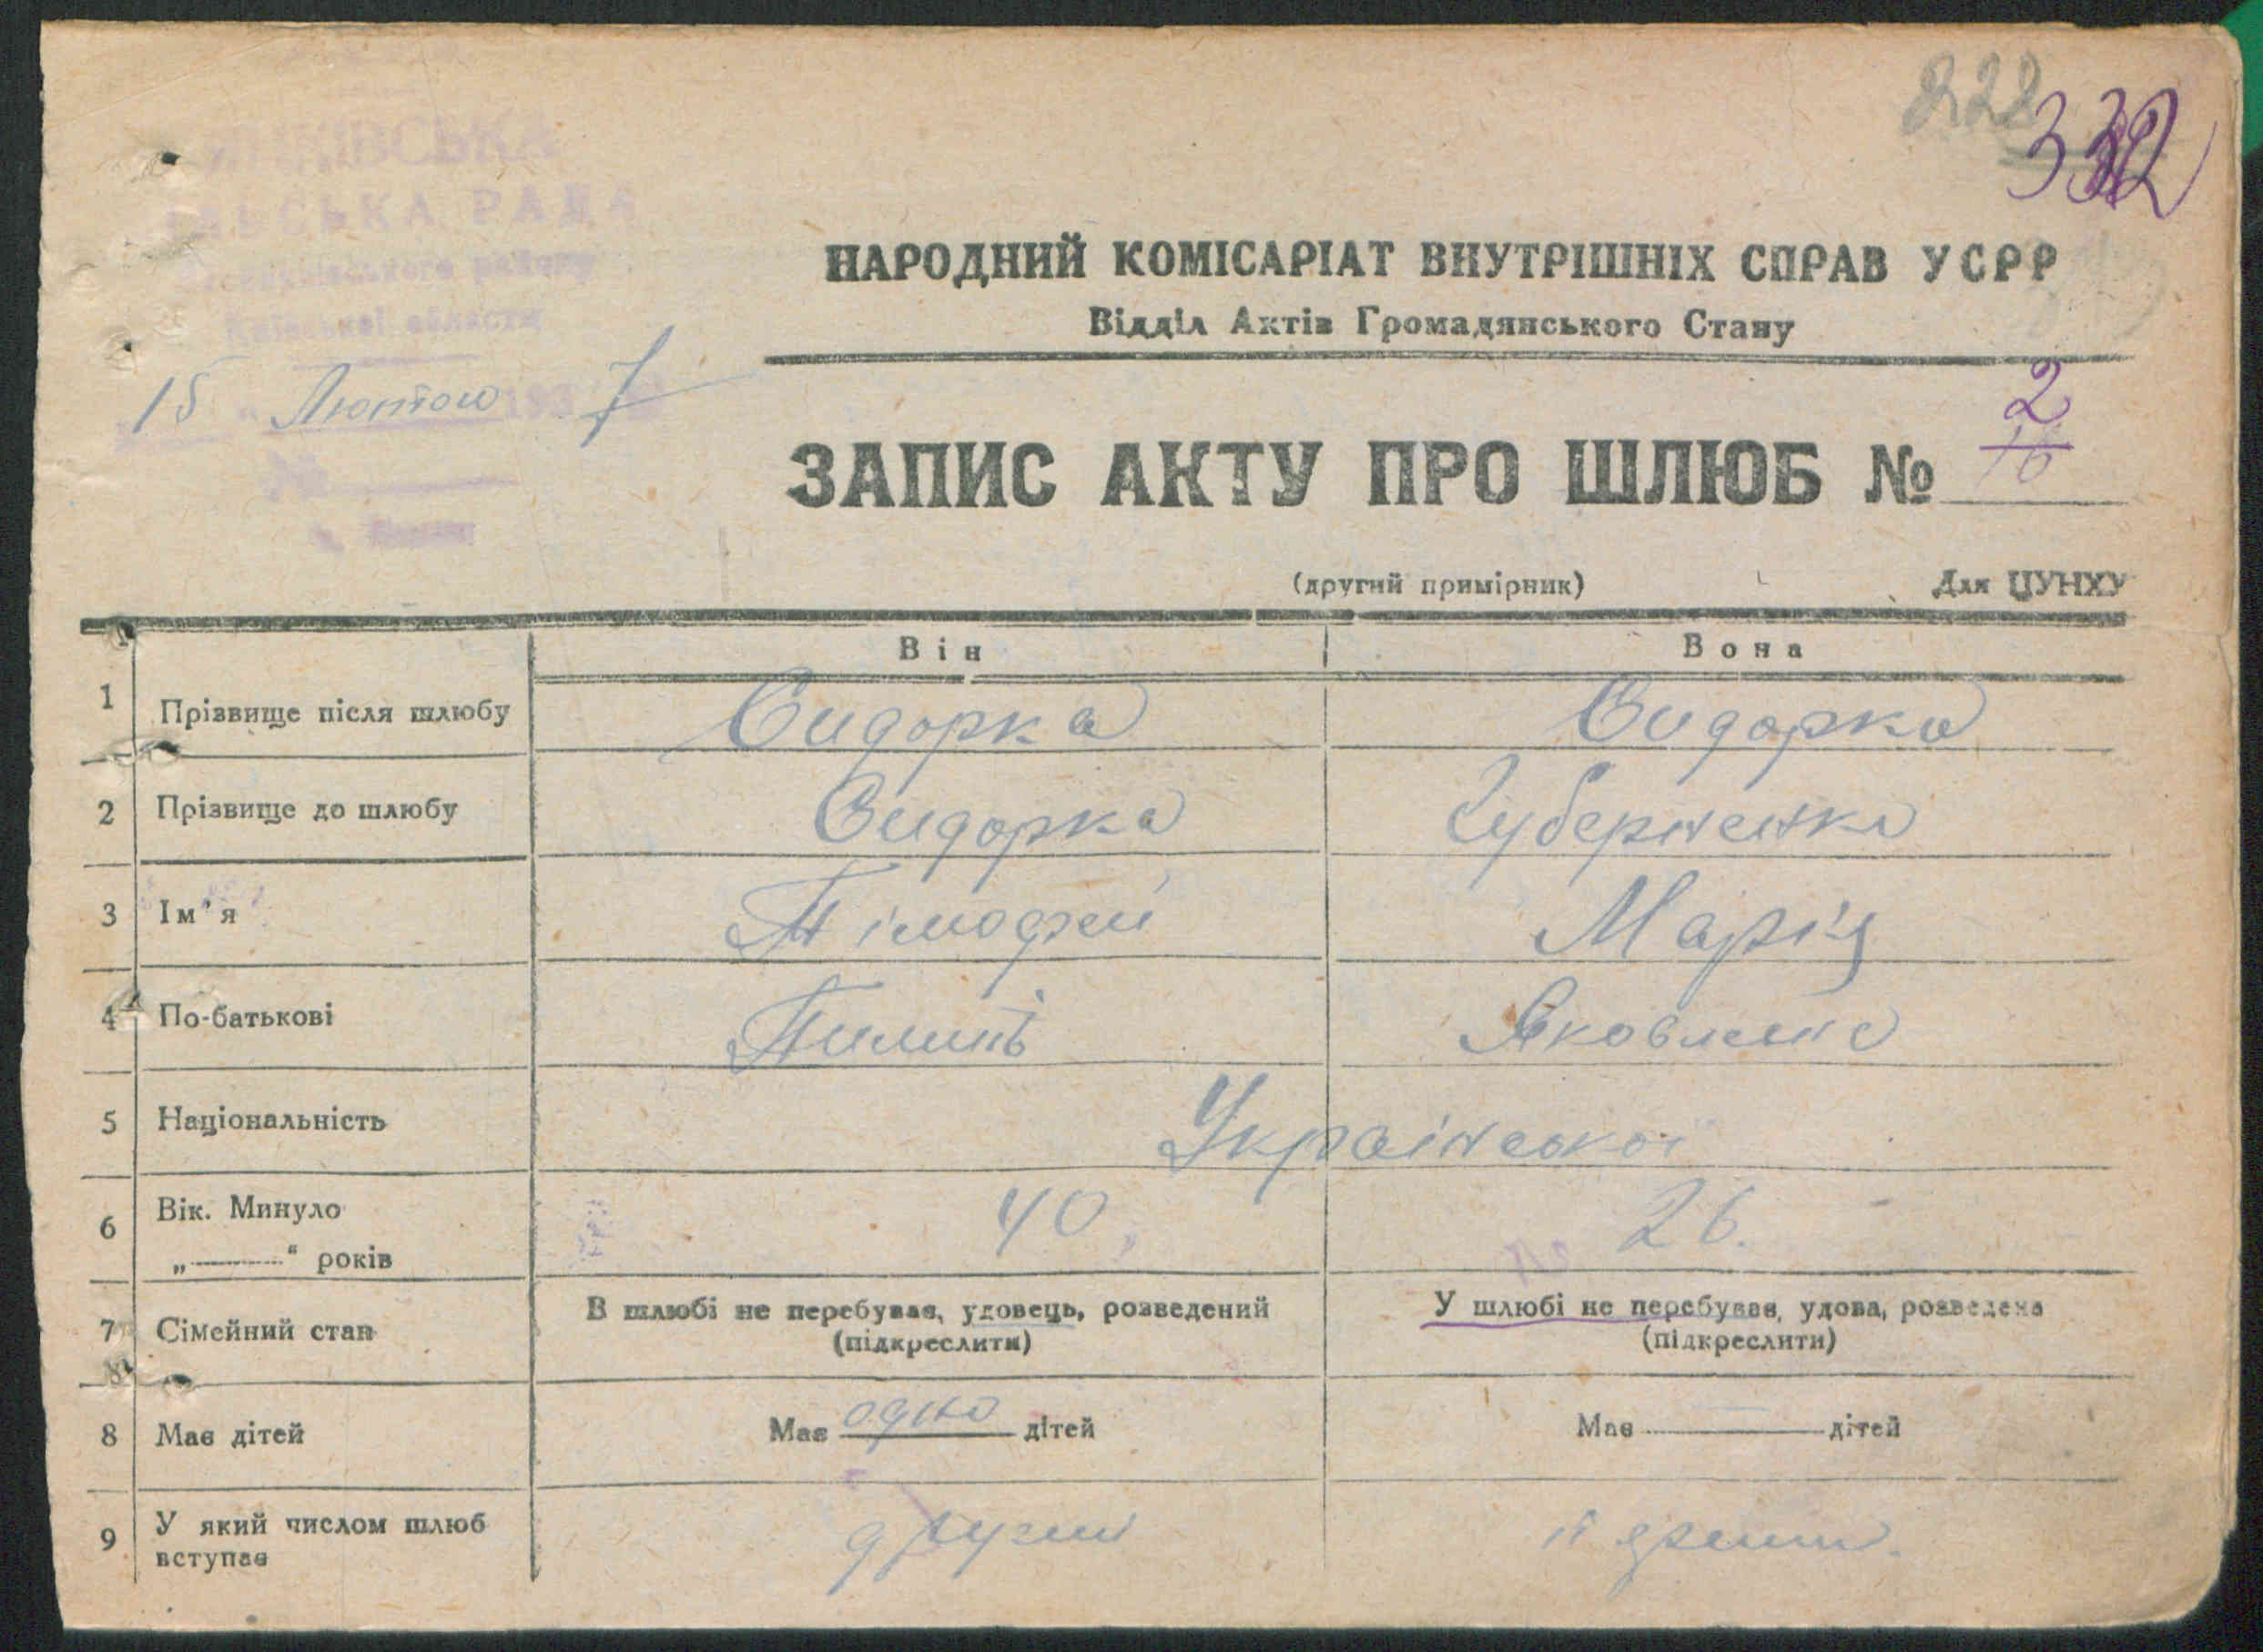 228
332
РАДА
району
Київської области
15 " Лютого 193 7
НАРОДНИЙ КОМІСАРІАТ ВНУТРІШНІХ СПРАВ УСРР
Відділ Актів Громадянського Стану
ЗАПИС АКТУ ПРО ШЛЮБ № 2
16
(другий примірник) Для ЦУНХУ
Він Вона
1 Прізвище після шлюбу Сидорка Сидорка
2 Прізвище до шлюбу Сидорка Губерненко
3 Ім'я Тімофей Марія
4 По-батькові Пилип Яковлена
5 Національність Української
6 Вік. Минуло 40 26.
„———“ років
7 Сімейний стан В шлюбі не перебував, удовець, розведений У шлюбі не перебував, удова, розведена
(підкреслити) (підкреслити)
8 Має дітей Має одно дітей Має ——— дітей
9 У який числом шлюб другий
вступає